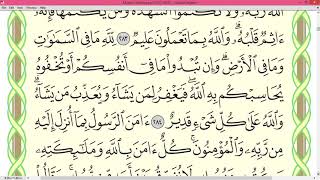 ٱللَّهَ رَبَّهُۥ وَلَا تَكْتُمُوا۟ ٱلشَّهَٰدَةَ وَمَن يَكْتُمْهَا فَإِنَّهُۥٓ
ءَاثِمٌ قَلْبُهُۥ وَٱللَّهُ بِمَا تَعْمَلُونَ عَلِيمٌ ٢٨٣ لِّلَّهِ مَا فِى ٱلسَّمَٰوَٰتِ
وَمَا فِى ٱلْأَرْضِ وَإِن تُبْدُوا۟ مَا فِىٓ أَنفُسِكُمْ أَوْ تُخْفُوهُ
يُحَاسِبْكُم بِهِ ٱللَّهُ فَيَغْفِرُ لِمَن يَشَآءُ وَيُعَذِّبُ مَن يَشَآءُ
وَٱللَّهُ عَلَىٰ كُلِّ شَىْءٍ قَدِيرٌ ٢٨٤ ءَامَنَ ٱلرَّسُولُ بِمَآ أُنزِلَ إِلَيْهِ
مِن رَّبِّهِۦ وَٱلْمُؤْمِنُونَ كُلٌّ ءَامَنَ بِٱللَّهِ وَمَلَٰٓئِكَتِهِۦ